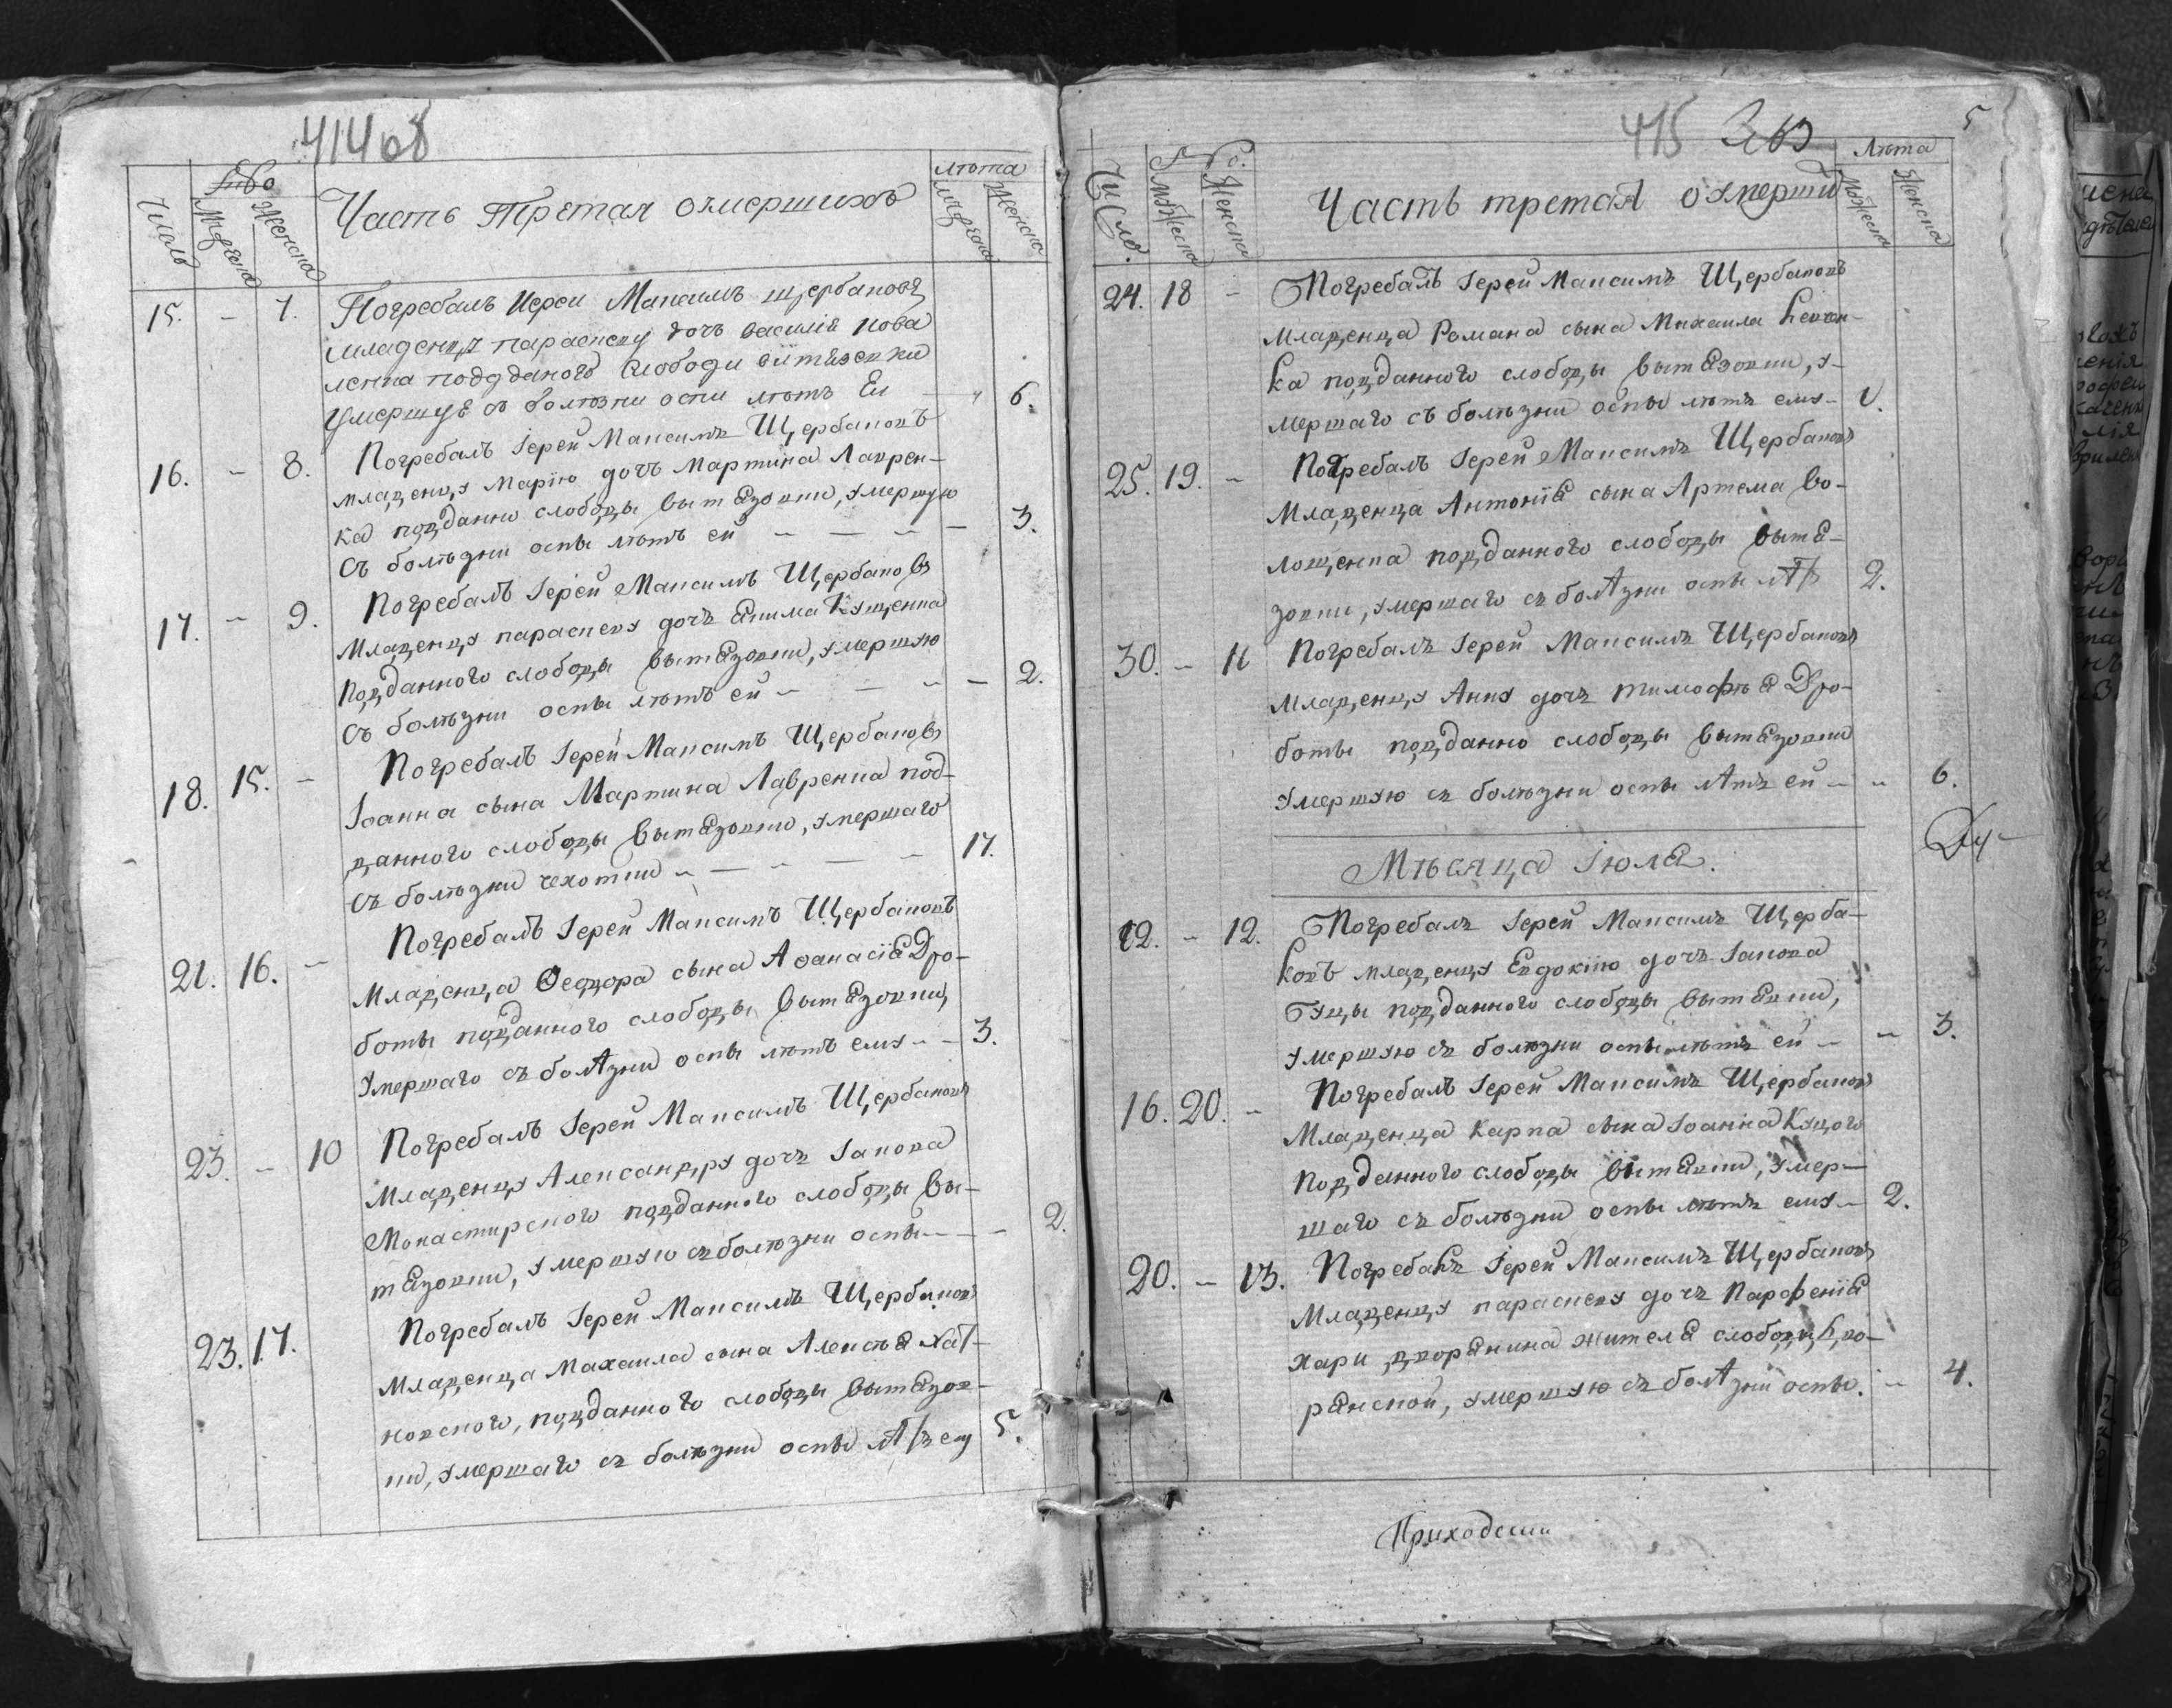 414 68
Число
Мужеска
Женска
Часть Третая оумершихъ
лѣта
Мужеска
Женска
15. - 7. Погребалъ Иереи Максимъ щербаковъ
младенца параскеву дочь василія кова
ленка подданого слободи витязевки
умершуѣ съ болѣзни оспи лѣтъ Еи - 6.
16. - 8. Погребалъ Іерей Максимъ Щербаковъ
младенцу Марію дочь Мартина Лаврен-
ка подданно слободы вытязовки, умершую
съ болѣзни оспы лѣтъ ей - - - - 3.
17. - 9. Погребалъ Іерей Максимъ Щербаковъ
Младенцу параскеву дочь Екима Кущенка
подданного слободы вытязовки, умершую
съ болѣзни оспы лѣтъ ей - - - - 2.
18. 15. - Погребалъ Іерей Максимъ Щербаковъ
Іоанна сына Мартина Лавренка под-
данного слободы вытязовки, умершаго
съ болѣзни чехотки - - - - - 17.
21. 16. - Погребалъ Іерей Максимъ Щербаковъ
Младенца Ѳеодора сына Аѳанасія Дро-
боты подданного слободы вытязовки,
умершаго съ болѣзни оспы лѣтъ ему - - 3.
23. - 10 Погребалъ Іерей Максимъ Щербаковъ
Младенцу Александру дочь Іакова
Монастирского подданного слободы вы-
тязовки, умершую съ болѣзни оспы - - - 2.
23. 17. Погребалъ Іерей Максимъ Щербаковъ
Младенца Махаила сына Алексѣя Хат-
новского, подданного слободы вытязов-
ки, умершаго съ болѣзни оспы лѣтъ ему 5.
415 5
Число.
Мужеска
Женска
Часть третая оумерши
Лѣта
Мужеска
Женска
24. 18 - Погребалъ Іерей Максимъ Щербаковъ
Младенца Романа сына Михаила
ка подданного слободы вытязовки, у-
мершаго съ болѣзни оспы лѣтъ ему -
25. 19. - Погребалъ Іерей Максимъ Щербаковъ
Младенца Антонія сына Артема Во-
лощенка подданного слободы вытя-
зовки, умершаго съ болѣзни оспы лѣтъ 2.
30. - 11 Погребалъ Іерей Максимъ Щербаковъ
Младенцу Анну дочь тимофѣя Дро-
боты подданно слободы вытязовки
умершую съ болѣзни оспы лѣтъ ей - - 6.
Мѣсяца Іюля.
12. - 12. Погребалъ Іерей Максимъ Щерба-
ковъ младенцу Евдокію дочь Іакова
Гуцы подданного слободы вытявки,
умершую съ болѣзни оспы лѣтъ ей - - 3.
16. 20. - Погребалъ Іерей Максимъ Щербаковъ
Младенца Карпа сына Іоанна Куцого
подданного слободы вытявки, умер-
шаго съ болѣзни оспы лѣтъ ему - 2.
20. - 13. Погребалъ Іерей Максимъ Щербаковъ
Младенцу параскеву дочь Парфенія
хари дворянина жителя слободы Дво-
рянской, умершую съ болѣзни оспы. - 4.